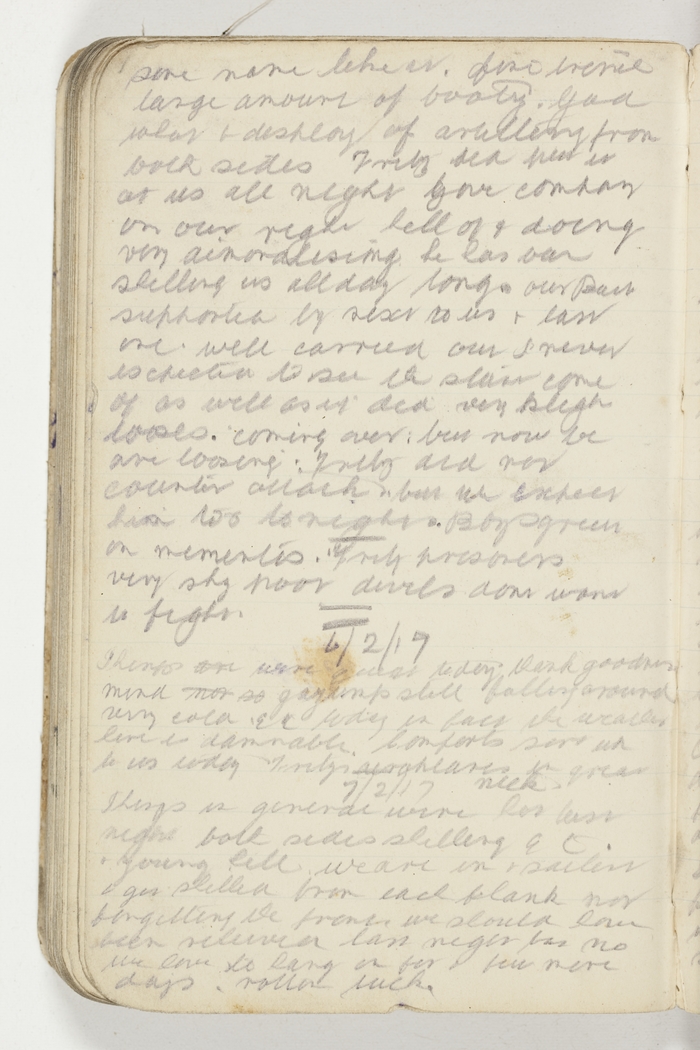 some more like it. fire
large amount of booty. God
what a desplay of artillery from
both sides Fritz did put it
at us all night Gave company
on our right hell of a doing
very dimoralising he has ben
shelling us all day long. our Batt
supported by next to us & last
one. well carried out I never
to see the stunt come
of as well as it did very sligh
looses. coming over: but now we
are loosing: Fritz did not
counter attack but we expect
him too to night. Boys great
on mementos. Fritz prisoners
very shy poor devils dont want
to fight.
6/2/17
Things are were quiet today. thank goodness
mind not so gazumps still falling around
very cold today in fact the weather
here is damnable. Comforts sent up
to us today Fritz in great
7/2/17 neck
Things in general were hot last
night both sides shelling
a young hell we are in a sailent
& get shelled from each flank not
forgetting the front. we should have
been relieved last night but no
we have to hang on for a few more
days. rotten luck.